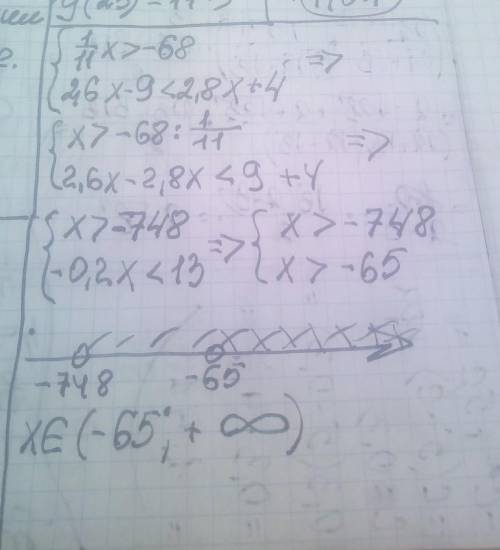 { 1/11 x > -68
2,6x - 9 < 2,8x + 4 =>
{ x > -68 : 1/11
2,6x - 2,8x < 9 + 4 =>
{ x > -748 => { x > -748
-0,2x < 13 x > -65
-748 -65
x∈(-65; +∞)